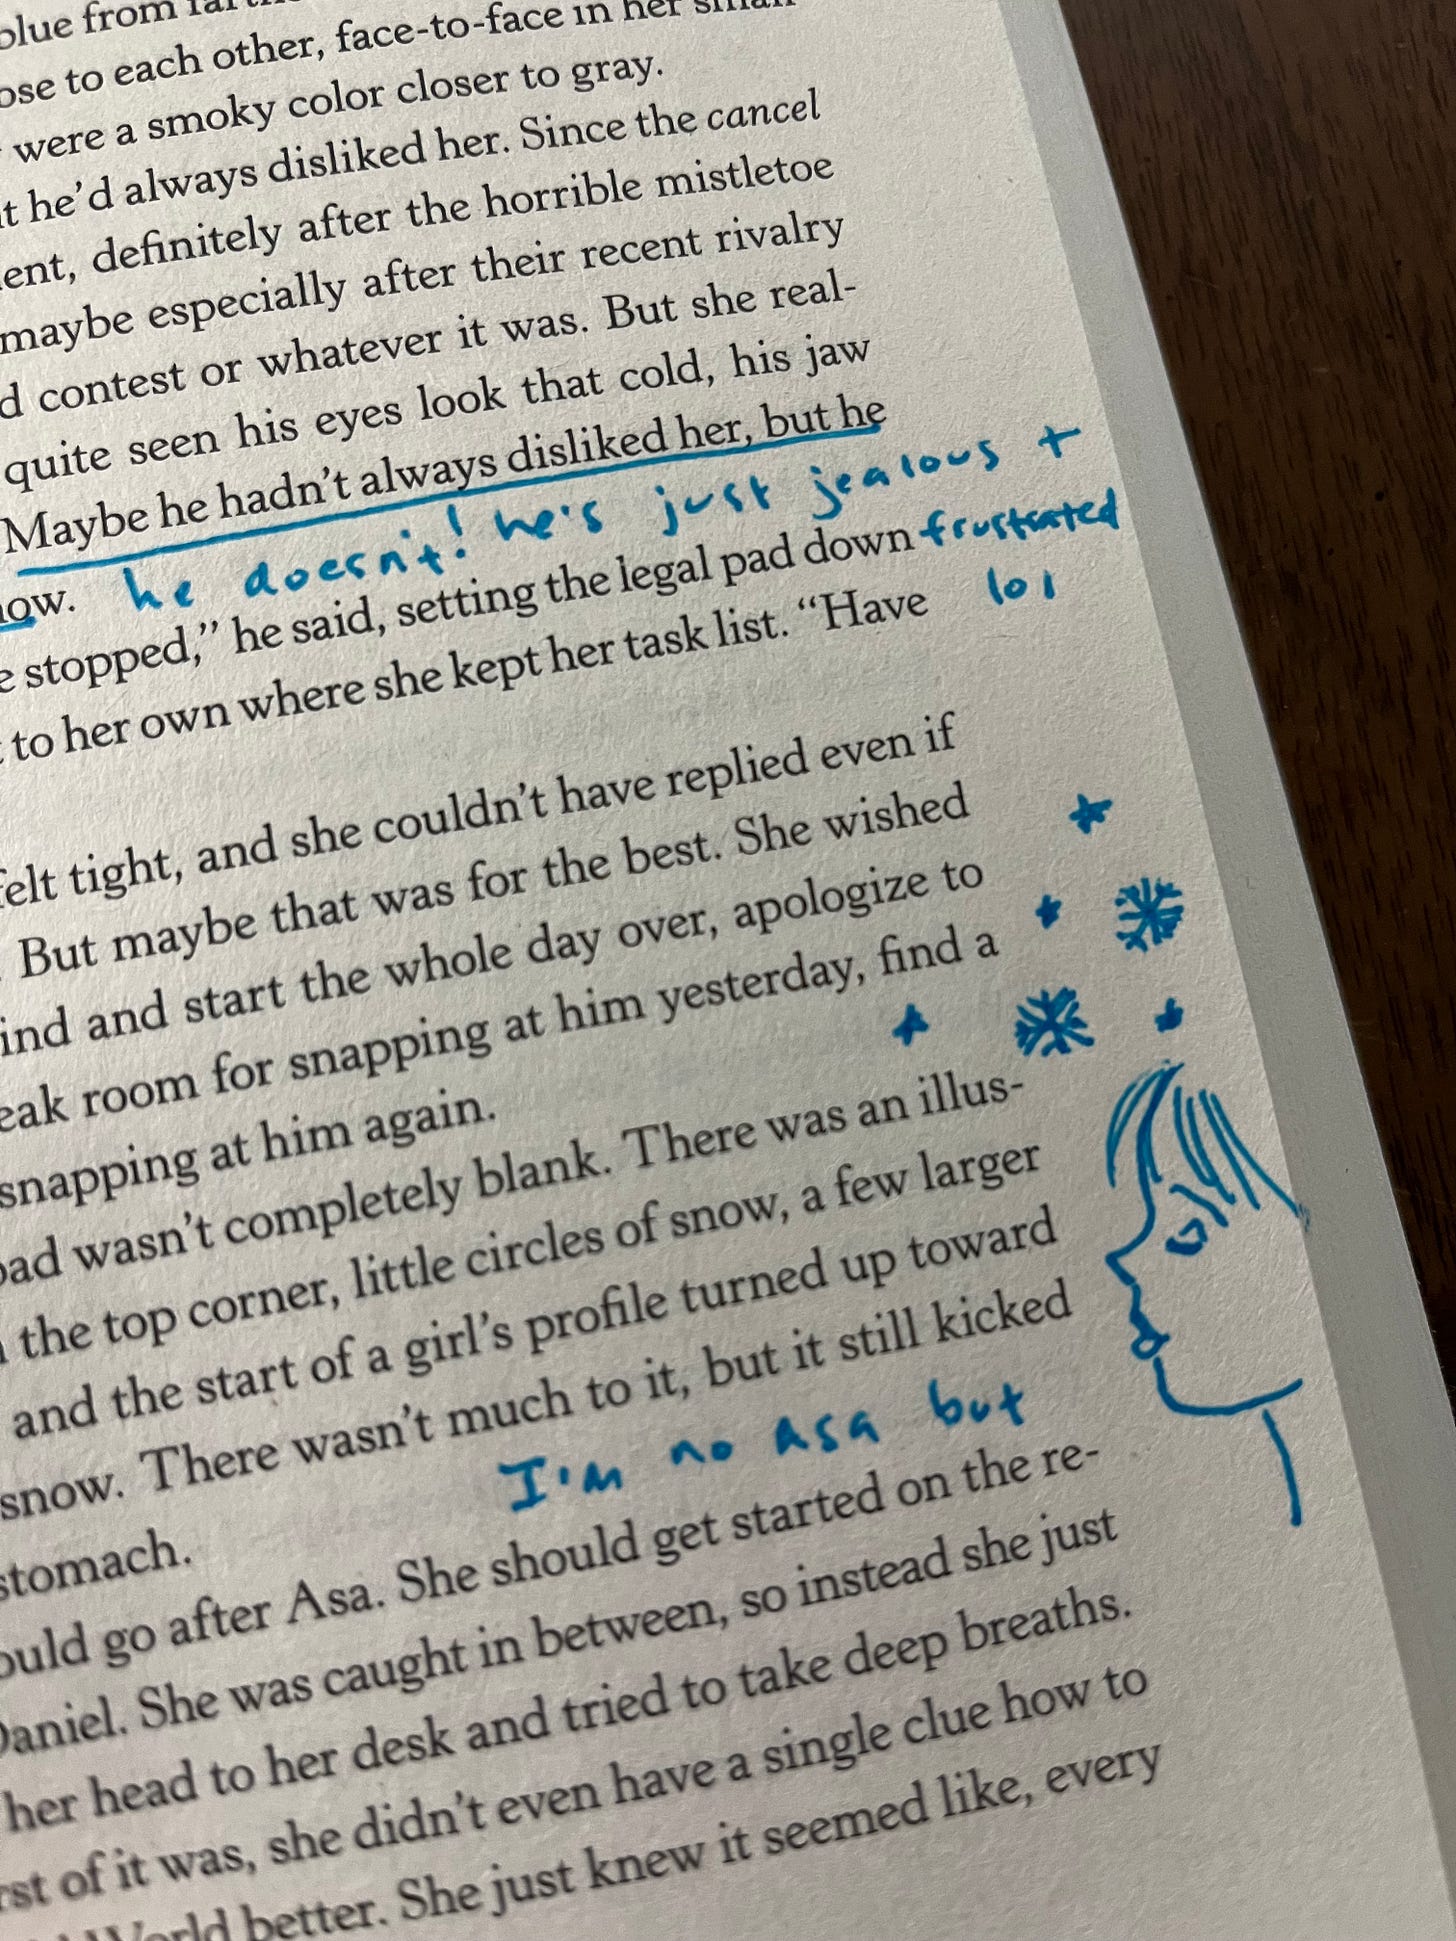 blue from
ose to each other, face-to-face in her small
were a smoky color closer to gray.
t he'd always disliked her. Since the cancel
ent, definitely after the horrible mistletoe
maybe especially after their recent rivalry
d contest or whatever it was. But she real-
quite seen his eyes look that cold, his jaw
Maybe he hadn't always disliked her, but he
he doesn't! he's just jealous +
frustrated
lol
now.
e stopped," he said, setting the legal pad down
to her own where she kept her task list. "Have
felt tight, and she couldn't have replied even if
. But maybe that was for the best. She wished
ind and start the whole day over, apologize to
eak room for snapping at him yesterday, find a
snapping at him again.
pad wasn't completely blank. There was an illus-
the top corner, little circles of snow, a few larger
and the start of a girl's profile turned up toward
snow. There wasn't much to it, but it still kicked
I'm no Asa but
stomach.
ould go after Asa. She should get started on the re-
Daniel. She was caught in between, so instead she just
her head to her desk and tried to take deep breaths.
rst of it was, she didn't even have a single clue how to
World better. She just knew it seemed like, every